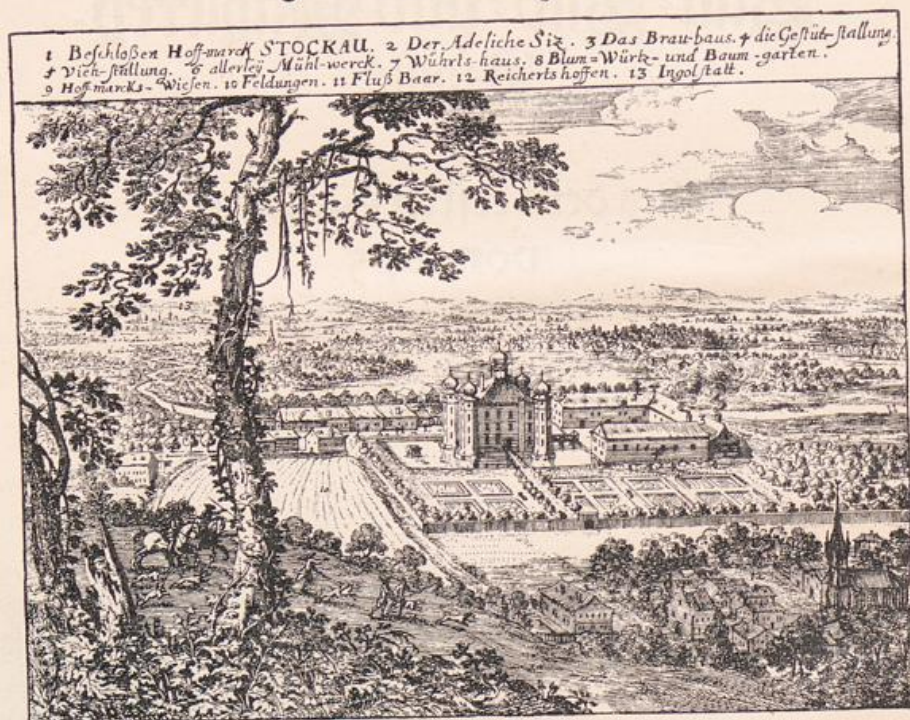 1 Beschloßen Hoff-marck STOCKAU. 2 Der Adeliche Siz. 3 Das Brau-haus. 4 die Gestüt-stallung.
5 Vieh-stallung. 6 allerleÿ Mühl-werck. 7 Würts-haus. 8 Blum=Würtz- und Baum-garten.
9 Hoff-marcks-Wiesen. 10 Feldungen. 11 Fluß Baar. 12 Reicherts hoffen. 13 Ingolstatt.
13
10